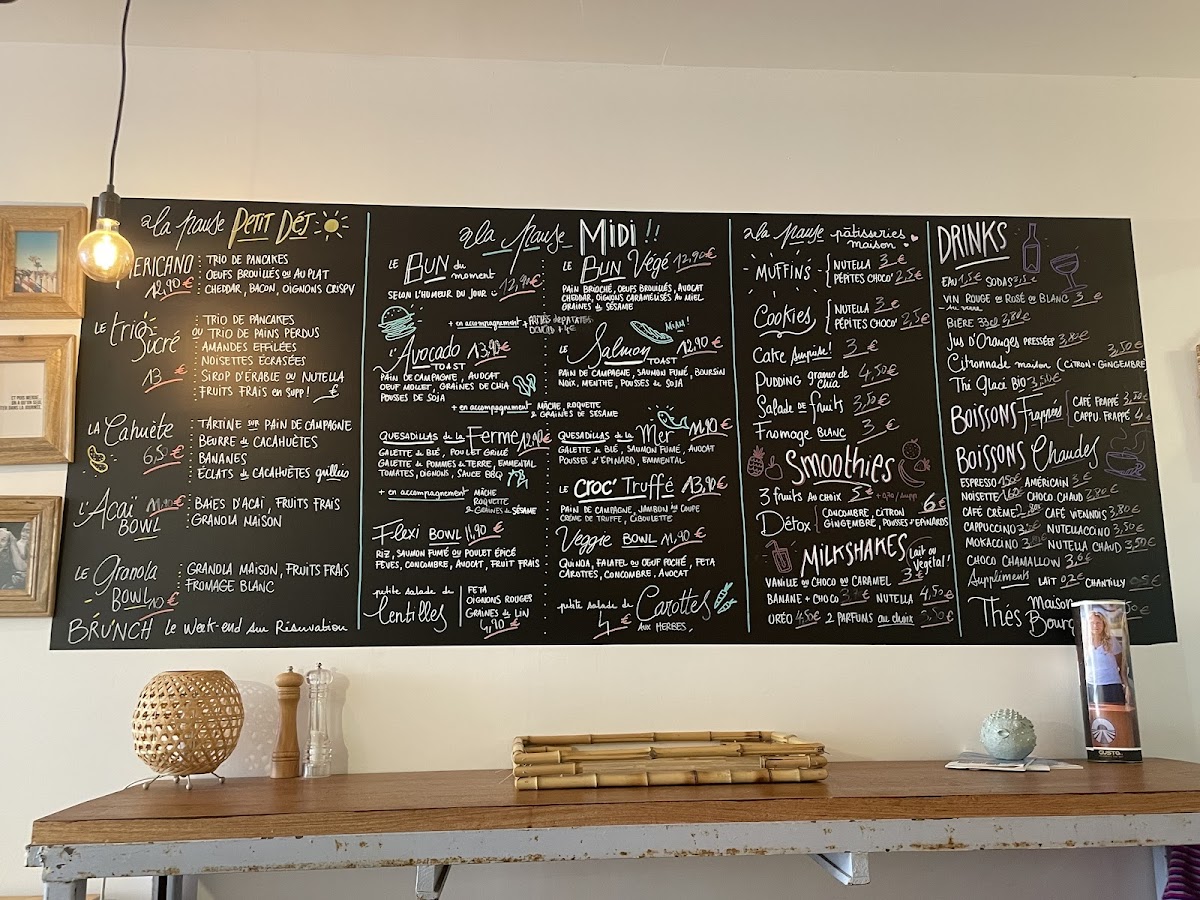 à la pause PETIT DÉJ
TRIO DE PANCAKES
OEUFS BROUILLÉS OU AU PLAT
12,90€
CHEDDAR, BACON, OIGNONS CRISPY
LE trio Sucré
TRIO DE PANCAKES
OU TRIO DE PAINS PERDUS
AMANDES EFFILÉES
NOISETTES ÉCRASÉES
13 €
SIROP D'ÉRABLE OU NUTELLA
FRUITS FRAIS en supp! €
LA Cahuète
6,50€
TARTINE SUR PAIN DE CAMPAGNE
BEURRE de CACAHUÈTES
BANANES
ÉCLATS de CACAHUÈTES grillées
L'Açaï BOWL
BAIES D'AÇAÏ, FRUITS FRAIS
GRANOLA MAISON
LE Granola BOWL 10 €
GRANOLA MAISON, FRUITS FRAIS
FROMAGE BLANC
BRUNCH Le WEEK-END sur Réservation
à la pause MIDI !!
LE BUN du moment
SELON L'HUMEUR DU JOUR 12,90€
+ en accompagnement
L'Avocado TOAST 13,90€
PAIN DE CAMPAGNE, AVOCAT
OEUF MOLLET, GRAINES DE CHIA
POUSSES DE SOJA
+ en accompagnement MÂCHE, ROQUETTE
& GRAINES de SÉSAME
QUESADILLAS de la Ferme 12,90€
GALETTE DE BLÉ, POULET GRILLÉ
GALETTE DE POMMES DE TERRE, EMMENTAL
TOMATES, OIGNONS, SAUCE BBQ
+ en accompagnement MÂCHE
ROQUETTE
& GRAINES de SÉSAME
Flexi BOWL 11,90 €
RIZ, SAUMON FUMÉ OU POULET ÉPICÉ
FÈVES, CONCOMBRE, AVOCAT, FRUIT FRAIS
petite salade de Lentilles
FETA
OIGNONS ROUGES
GRAINES de LIN
4,90 €
LE BUN Végé 12,90€
PAIN BRIOCHÉ, OEUFS BROUILLÉS, AVOCAT
CHEDDAR, OIGNONS CARAMÉLISÉS AU MIEL
GRAINES de SÉSAME
MIAM!
LE Salmon TOAST 12,90 €
PAIN DE CAMPAGNE, SAUMON FUMÉ, BOURSIN
NOIX, MENTHE, POUSSES DE SOJA
QUESADILLAS de la Mer 11,90 €
GALETTE DE BLÉ, SAUMON FUMÉ, AVOCAT
POUSSES D'ÉPINARD, EMMENTAL
LE CROC' Truffé 13,90€
PAIN DE CAMPAGNE, JAMBON COUPE
CRÈME DE TRUFFE, CIBOULETTE
Veggie BOWL 11,90 €
QUINOA, FALAFEL OU OEUF POCHÉ, FETA
CAROTTES, CONCOMBRE, AVOCAT
petite salade de Carottes
4 € AUX HERBES
à la pause pâtisseries maison !
MUFFINS
NUTELLA 3 €
PÉPITES CHOCO' 2,5€
Cookies
NUTELLA 3 €
PÉPITES CHOCO' 2,5€
Cake Surprise! 3 €
PUDDING graines de chia 4,50€
Salade de fruits 3,50€
Fromage BLANC 3 €
Smoothies
3 FRUITS AU CHOIX 5€
Détox
CONCOMBRE, CITRON
GINGEMBRE, POUSSES D'EPINARDS
6€
MILKSHAKES Lait ou Végétal!
VANILLE OU CHOCO OU CARAMEL 3€
BANANE + CHOCO NUTELLA 4,50€
ORÉO 4,50€ 2 PARFUMS au choix
DRINKS
EAU 1,5€ SODAS
VIN ROUGE OU ROSÉ OU BLANC 3 €
BIÈRE 33cl
JUS D'ORANGES PRESSÉES 3,80€
3,50€
Citronnade maison (CITRON - GINGEMBRE
Thé Glacé BIO 3,50€
BOISSONS Frappées
CAFÉ FRAPPÉ
CAPPU. FRAPPÉ 4
BOISSONS Chaudes
ESPRESSO AMÉRICAIN 3 €
NOISETTE CHOCO. CHAUD 2,80€
CAFÉ CRÈME CAFÉ VIENNOIS 3,80€
CAPPUCCINO NUTELLACCINO 3,50€
MOKACCINO NUTELLA CHAUD 3,50€
CHOCO CHAMALLOW
Suppléments LAIT 0,2€ CHANTILLY
Thés Maison
ET PUIS MERDE,
DANS LA JOURNÉE.